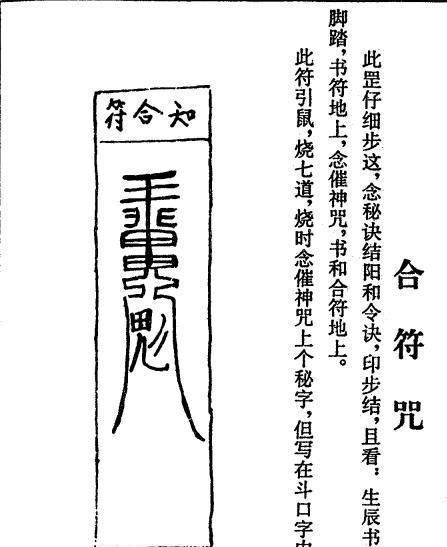 合符咒
此罡仔细步这，念秘诀结阳和令诀，印步结，且看：生辰书
脚踏，书符地上，念催神咒，书和合符地上。
此符引鼠，烧七道，烧时念催神咒上个秘字，但写在斗口字
知合符